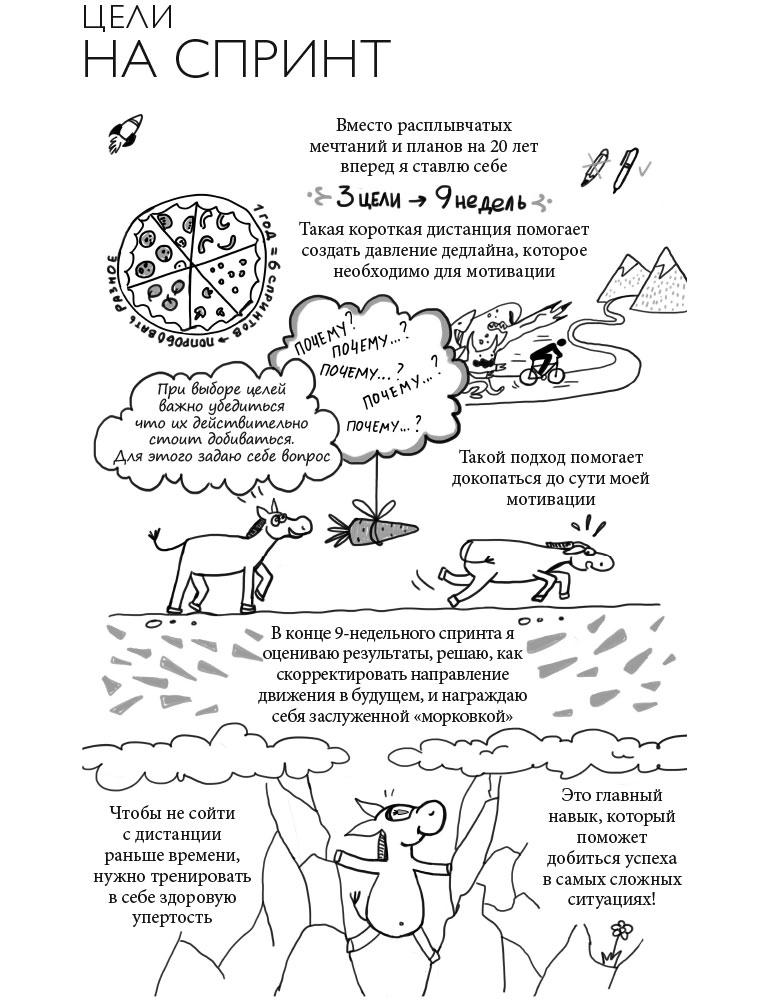 ЦЕЛИ
НА СПРИНТ
Вместо расплывчатых
мечтаний и планов на 20 лет
вперед я ставлю себе
3 цели → 9 недель
Такая короткая дистанция помогает
создать давление дедлайна, которое
необходимо для мотивации
1 год = 6 спринтов → попробовать разное
ПОЧЕМУ?
ПОЧЕМУ...?
ПОЧЕМУ...?
ПОЧЕМУ...?
ПОЧЕМУ...?
При выборе целей
важно убедиться
что их действительно
стоит добиваться.
Для этого задаю себе вопрос
Такой подход помогает
докопаться до сути моей
мотивации
В конце 9-недельного спринта я
оцениваю результаты, решаю, как
скорректировать направление
движения в будущем, и награждаю
себя заслуженной «морковкой»
Чтобы не сойти
с дистанции
раньше времени,
нужно тренировать
в себе здоровую
упертость
Это главный
навык, который
поможет
добиться успеха
в самых сложных
ситуациях!